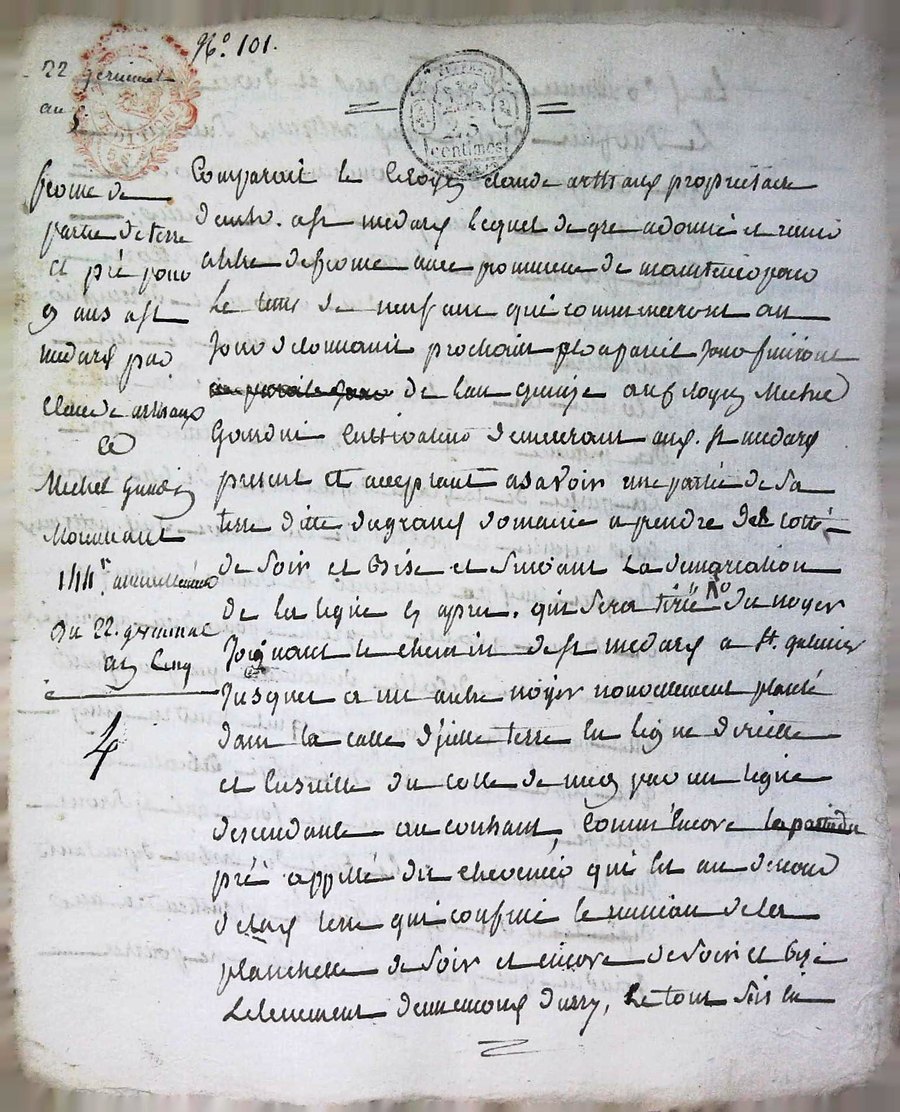 N.° 101.
22 germinal
an 5
25
centimes
ferme de
partie de terre
et pré pour
9 ans a st
medard par
Claude arthaud
a
Michel Gaudin
Mouvant
144# annuellement
Du 22. germinal
an Cinq
4
Comparoit le Citoyen claude arthaud propriétaire
demt. a st medard lequel de gré a donné et remis
a titre de ferme avec promesse de maintenir pour
Le tems de neuf ans qui commenceront au
Jour de toussaint prochain et a pareil Jour finiront
de l'an quinze au Citoyen Michel
Gaudin Cultivateur demeurant aud. st medard
present et acceptant a savoir une partie de sa
terre ditte du grand domaine a prendre des cotté
de soir et bise et suivant la
de la ligne cy apres. qui sera tirée du noyer
Joignant le chemin de st medard a st. galmier
Jusques a un autre noyer nouvellement planté
dans la ditte terre en ligne directe
et ensuitte du cotté de par une ligne
descendante au couchant, Comm'encore la partie du
pré appellé du qui est au denord
de terre qui confine le ruisseau de la
planchette de soir et encore de soir et bise
Le tout sis en